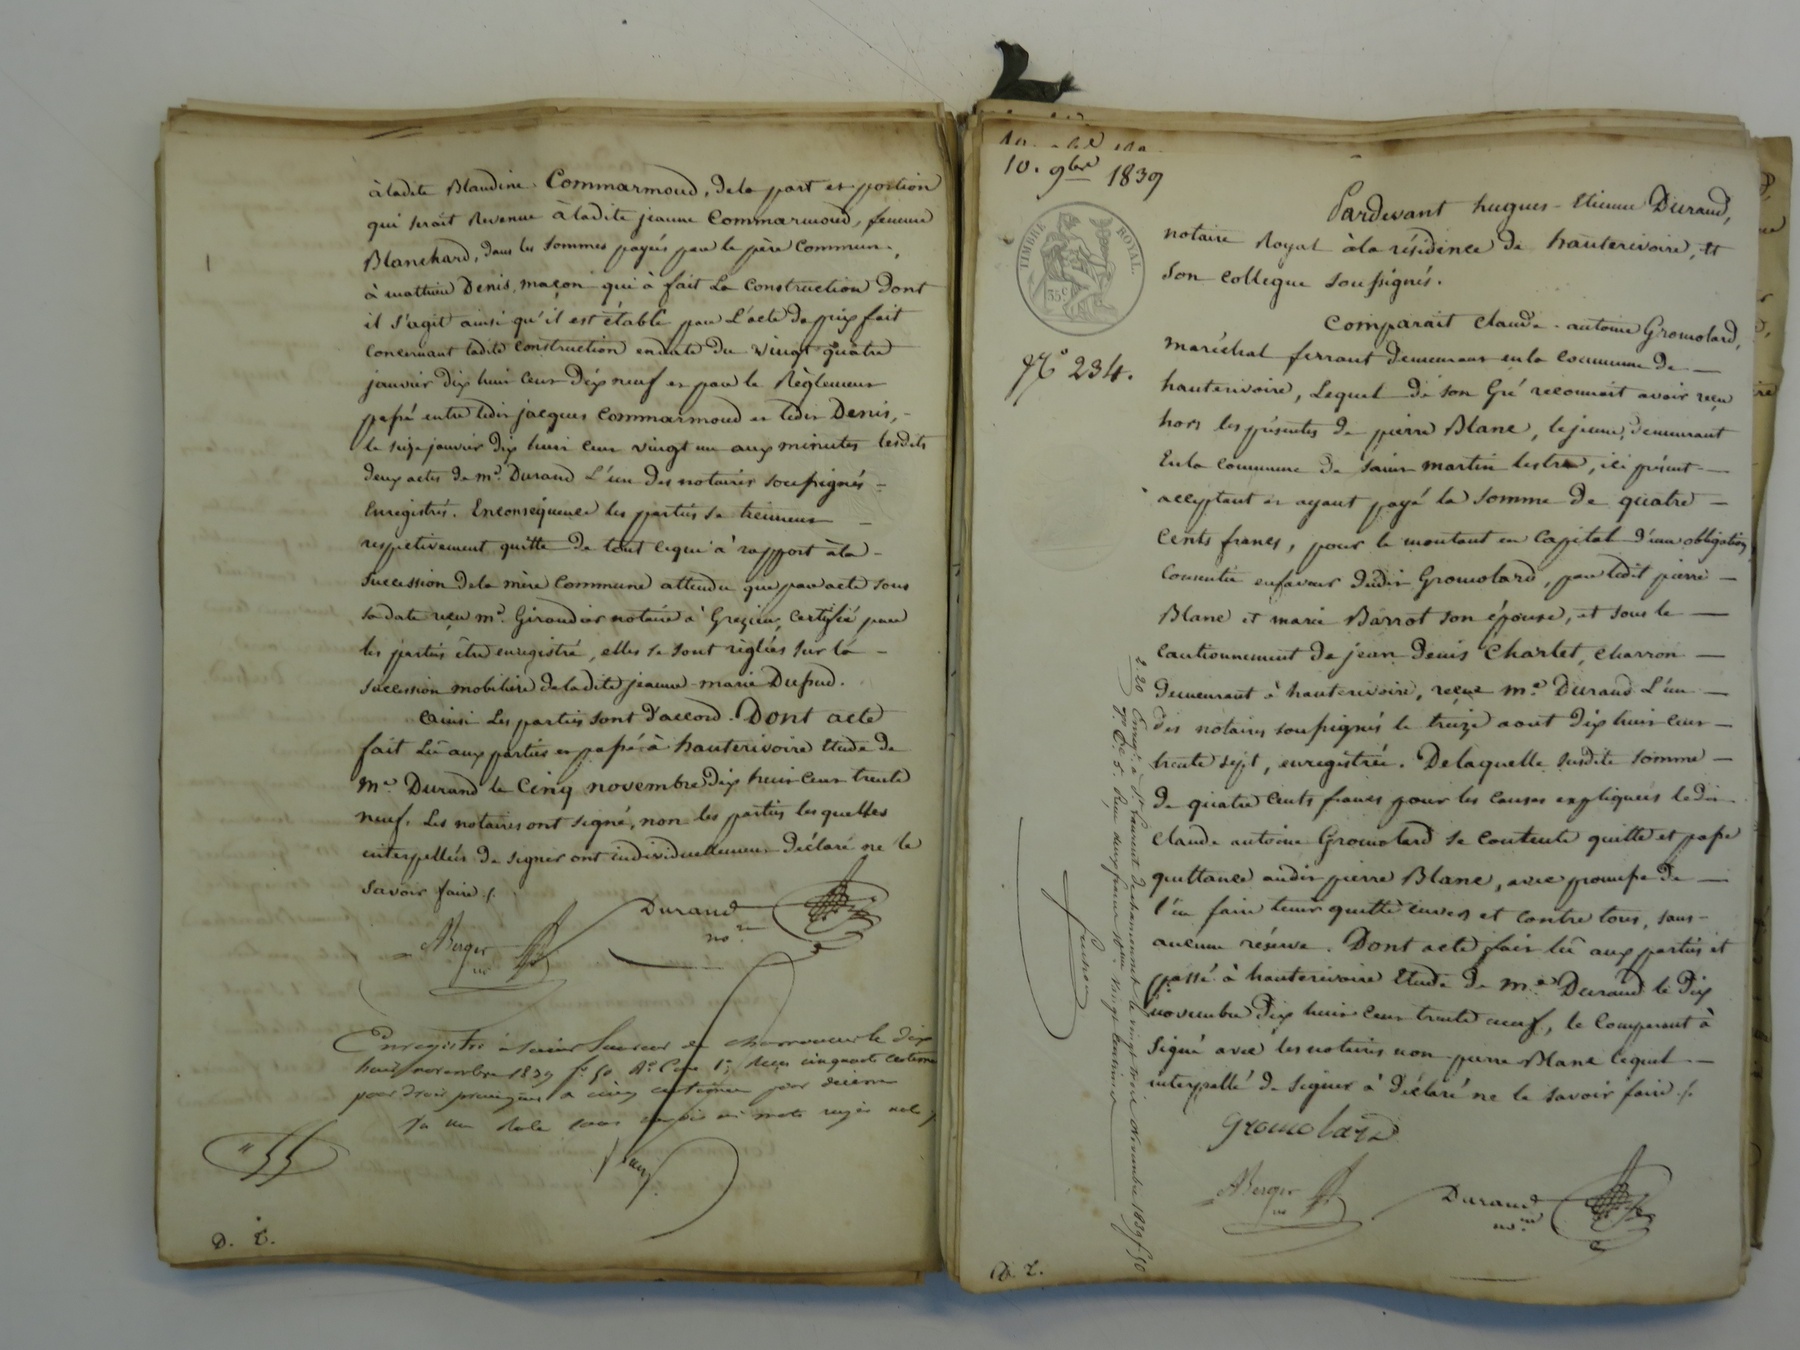 à ladite Blandine Commarmond, de la part et portion
qui serait Revenue à ladite jeanne Commarmond, femme
Blanchard, dans les Sommes payées par le père Commun,
à mathieu Denis, maçon qui à fait La Construction Dont
il S'agit ainsi qu'il est établi par L'acte de prix fait
Concernant ladite Construction en date du vingt quatre
janvier Dix huit cent Dix neuf et par le Règlement
passé entre ledit jacques Commarmond et ledit Denis, -
le seize janvier dix huit cent vingt un aux minutes lesdits
deux actes de me. Durand L'un des notaires soussignés -
Enregistrés. En conséquence les parties se tiennent -
respetivement quitte de tout ce qui à rapport à la -
Succession de la mère Commune attendu que par acte sous
sa date reçu me. Giraud notaire à Grezieu, Certifié par
les parties être enregistré, elles se sont réglées sur la -
succession mobilière de ladite jeanne-marie Dupud.
Ainsi Les parties sont D'accord. Dont acte
fait Lû aux parties et passé à hauterivoire Etude de
me Durand le Cinq novembre Dix huit Cent trente
neuf. Les notaires ont signé, non les parties lesquelles
interpellées de signer ont individuellement déclaré ne le
savoir faire /.
ABerger
nre
Durand
nore
Enregistré à Saint Laurent de chamousset le dix
huit novembre 1839 fo 50 Ro Case 1; Reçu cinquante centimes
pour Droit et cinq centimes pour décime
D. E.
10. 9bre 1839
TIMBRE ROYAL.
35c
No 234.
Pardevant hugues-Etienne Durand,
notaire Royal à la résidence de hauterivoire, et
Son collegue soussignés.
Comparait Claude-antoine Gromolard,
maréchal ferrant demeurant en la commune de —
hauterivoire, Lequel de son Gré reconnait avoir reçu
hors les présentes de pierre Blanc, le jeune, demeurant
En la commune de Saint martin lestra, ici présent —
acceptant et ayant payé la somme de quatre —
Cents francs, pour le montant en Capital d'une obligation
Consentie en faveur dudit Gromolard, par ledit pierre —
Blanc et marie Barrot son épouse, et sous le —
Cautionnement de jean Denis Charlet, Charron —
demeurant à hauterivoire, reçue me. Durand L'un —
des notaires soussignés le treize aout dix huit cent —
trente sept, enregistrée. De laquelle susdite somme —
de quatre Cents francs pour les causes expliquées ledit
Claude antoine Gromolard se contente quitte et passe
quittance audit pierre Blanc, avec promesse de —
l'en faire tenir quitte envers et contre tous, sans -
aucune réserve. Dont acte fait lû aux parties et
passé à hauterivoire Etude de me. Durand le dix
novembre dix huit cent trente neuf, le Comparant à
Signé avec les notaires non pierre Blanc lequel —
interpellé de signer à déclaré ne le savoir faire /.
Gromolard
ABerger
nre
Durand
nore
2.20 Enregé. à St. Laurent de chamousset le vingt trois Novembre 1839 fo. 50
Ro. Ce. 5. Reçu deux francs 10me. vingt centimes
D. E.